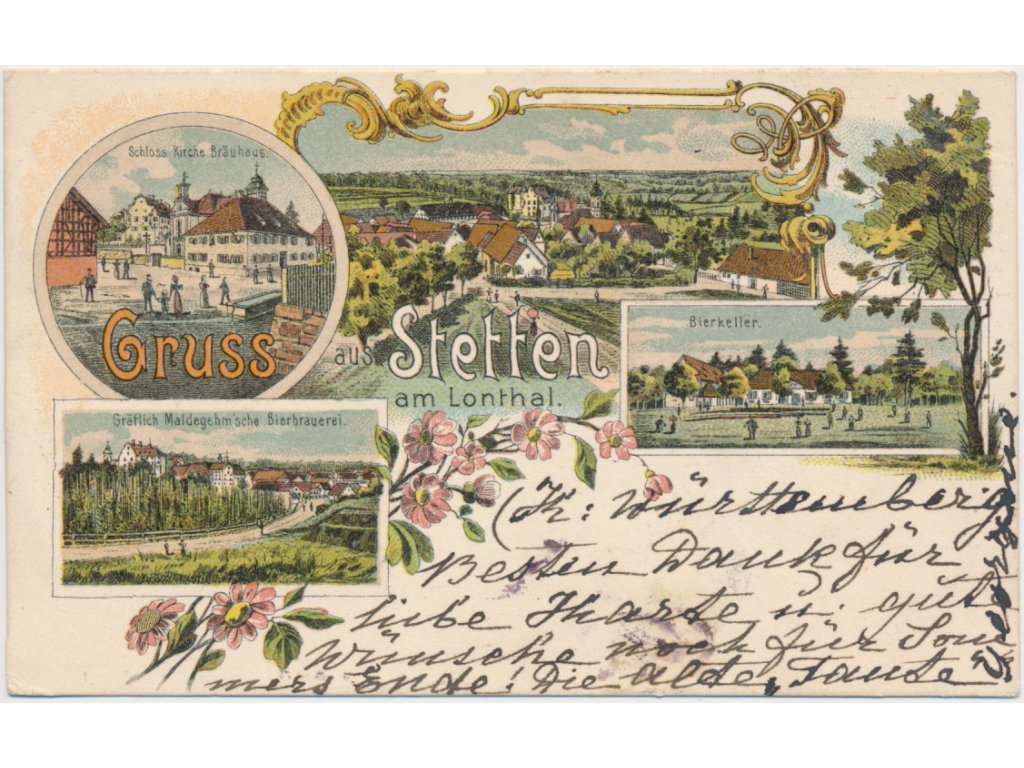 Schloss Kirche Bräuhaus.
Gruss aus Stetten
am Lonthal.
Bierkeller.
Gräflich Maldegehm'sche Bierbrauerei.
(K: Württemberg
Besten Dank für
liebe Karte u. gute
Wünsche noch für Som
mers Ende! Die alte „Tante"